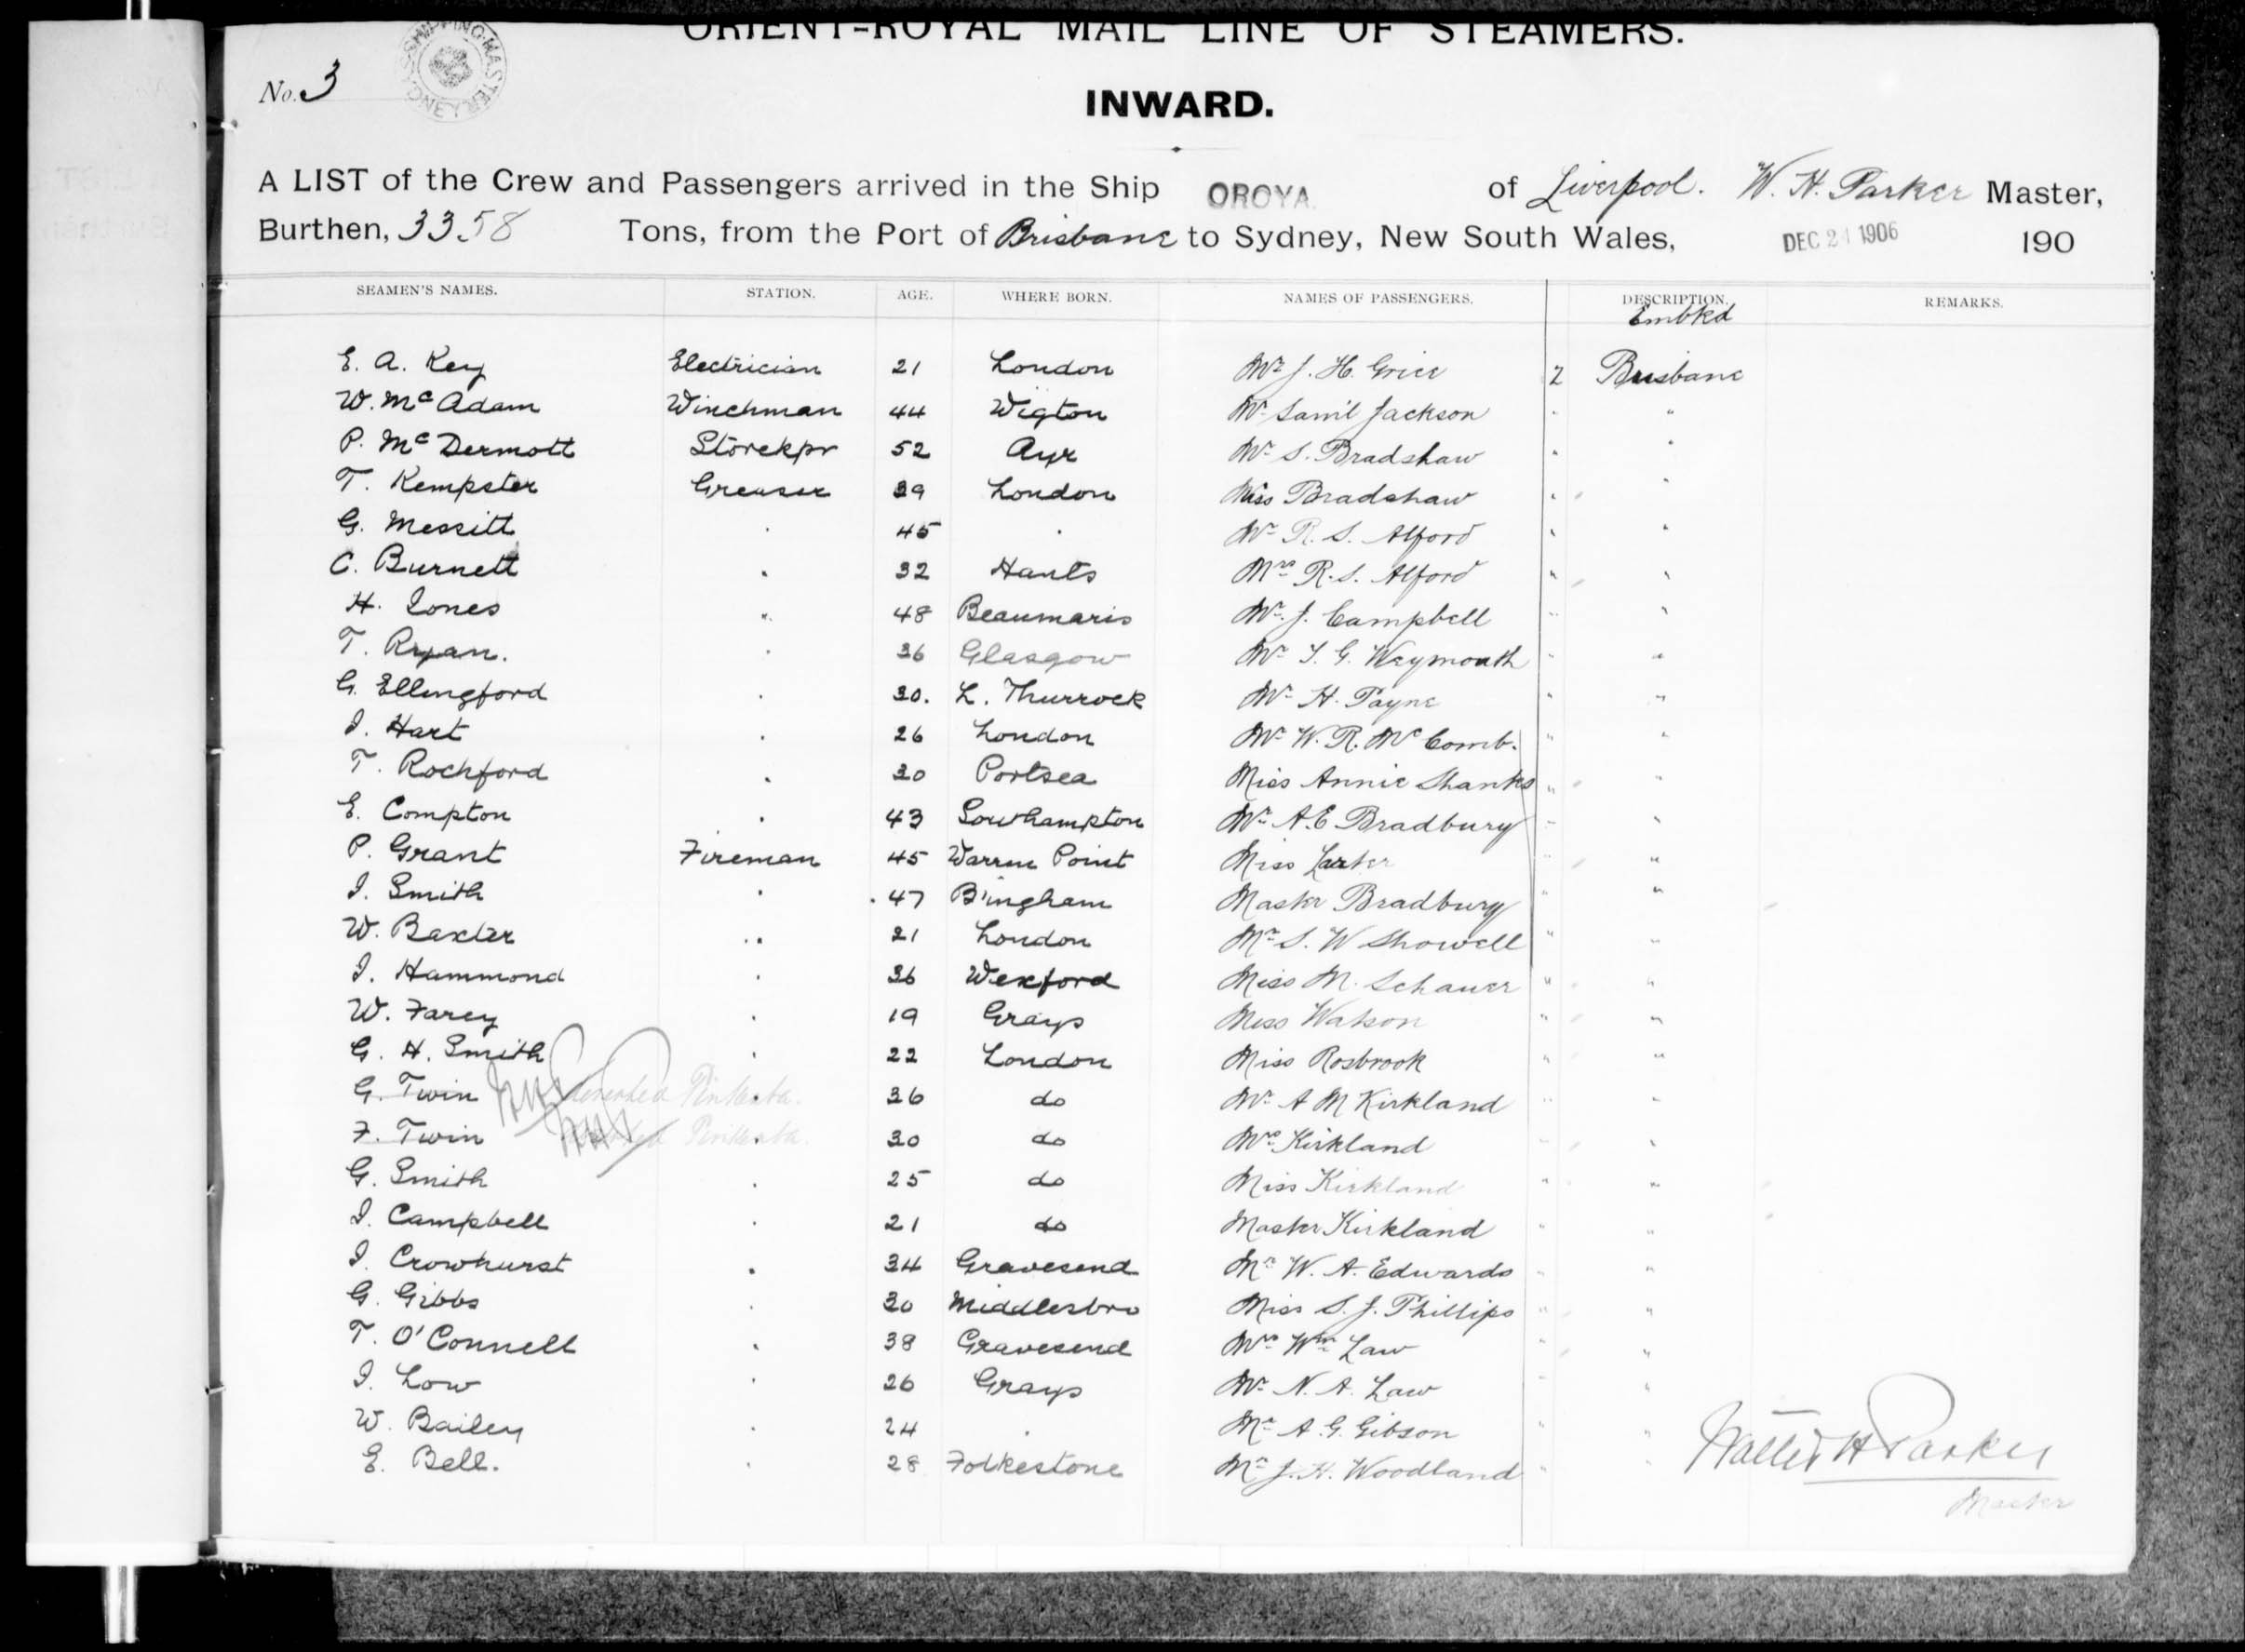 ORIENT-ROYAL MAIL LINE OF STEAMERS.
No. 3
SHIPPING MASTER SYDNEY
INWARD.
A LIST of the Crew and Passengers arrived in the Ship OROYA of Liverpool. W. H. Parker Master,
Burthen, 3358 Tons, from the Port of Brisbane to Sydney, New South Wales, DEC 21 1906 190
SEAMEN'S NAMES. STATION. AGE. WHERE BORN. NAMES OF PASSENGERS. DESCRIPTION. REMARKS.
Embkd
E. A. Key Electrician 21 London Mr J. H. Grice 2 Brisbane
W. McAdam Winchman 44 Wigton Mr Saml Jackson " "
P. McDermott Storekpr 52 Ayr Mr S. Bradshaw " "
T. Kempster Greaser 39 London Miss Bradshaw " "
G. Messitt " 45 " Mr R. S. Alford " "
C. Burnett " 32 Hants Mrs R. S. Alford " "
H. Jones " 48 Beaumaris Mr. J. Campbell " "
T. Ryan. " 36 Glasgow Mr T. G. Weymouth " "
G. Ellingford " 30. L. Thurrock Mr H. Payne " "
J. Hart " 26 London Mr W. R. McComb. " "
T. Rochford " 30 Portsea Miss Annie Shanks " "
E. Compton " 43 Southampton Mr A. E Bradbury " "
P. Grant Fireman 45 Warren Point Miss " "
J. Smith " 47 B'ingham Master Bradbury " "
W. Baxter " 21 London Mr S. W Showell " "
J. Hammond " 36 Wexford Miss M. Schauer " "
W. Farey " 19 Grays Miss Watson " "
G. H. Smith " 22 London Miss Rosbrook " "
G. Twin deserted Pinkenba. " 36 do Mr A M Kirkland " "
F. Twin deserted Pinkenba. " 30 do Mrs Kirkland " "
G. Smith " 25 do Miss Kirkland " "
J. Campbell " 21 do Master Kirkland " "
J. Crowhurst " 34 Gravesend Mr W. A. Edwards " "
G. Gibbs " 30 Middlesbro Miss S. J. Phillips " "
T. O'Connell " 38 Gravesend Mrs Wm Law " "
J. Low " 26 Grays Mr N. A. Law " "
W. Bailey " 24 " Mr A. G. Gibson " "
E. Bell. " 28 Folkestone Mr J. H. Woodland " "
Walter H Parker
Master